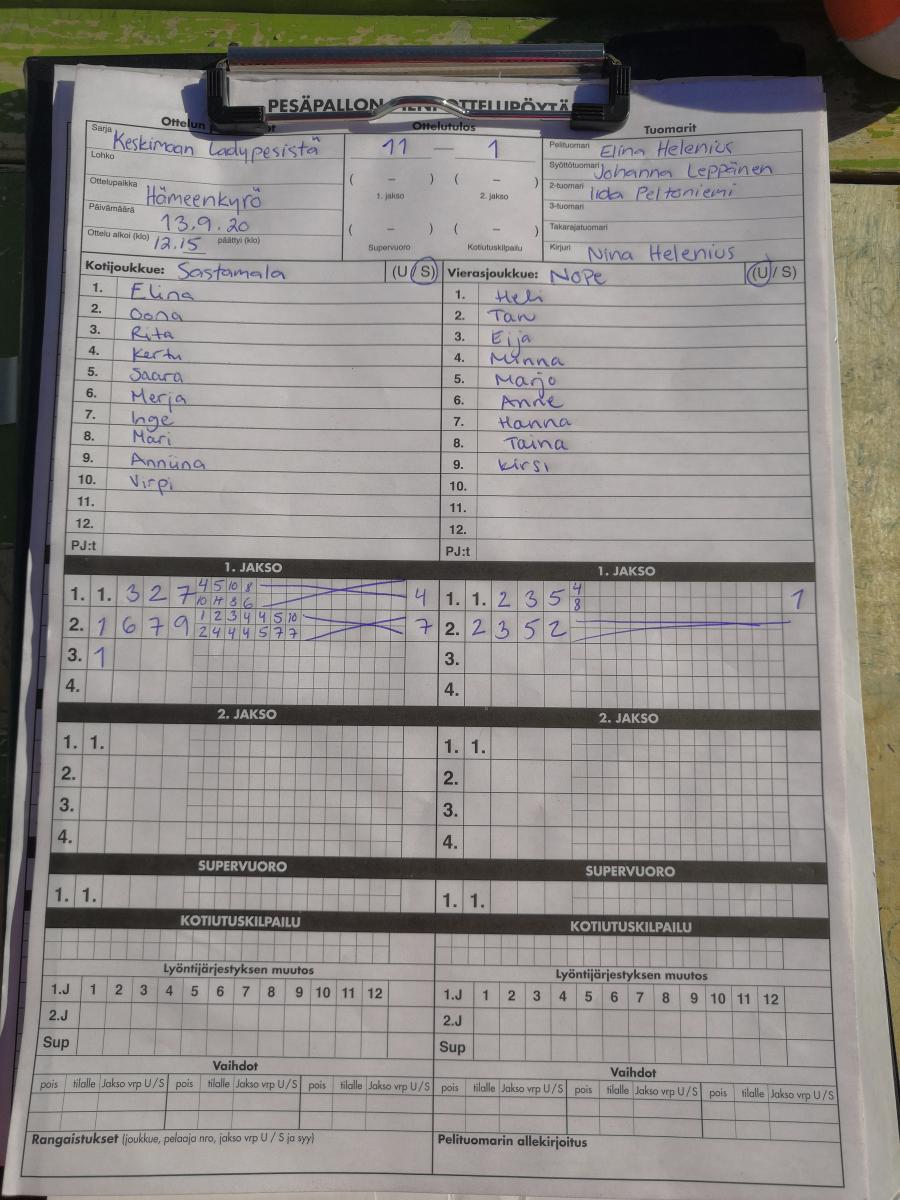 PESÄPALLON
Ottelun Ottelutulos Tuomarit
Sarja Keskimaan Ladypesistä 11 — 1 Pelituomari Elina Helenius
Lohko Syöttötuomari Johanna Leppänen
( – ) ( – ) 2-tuomari Iida Peltoniemi
Ottelupaikka Hämeenkyrö 1. jakso 2. jakso 3-tuomari
Päivämäärä 13.9.20 ( – ) ( – ) Takarajatuomari
Ottelu alkoi (klo) 12.15 päättyi (klo) Supervuoro Kotiutuskilpailu Kirjuri Nina Helenius
Kotijoukkue: Sastamala (U / S) Vierasjoukkue: Nope (U / S)
1. Elina 1. Heli
2. Oona 2.
3. Rita 3. Eija
4. Kerttu 4. Minna
5. Saara 5. Marjo
6. Merja 6. Anne
7. Inge 7. Hanna
8. Mari 8. Taina
9. Anniina 9. Kirsi
10. Virpi 10.
11. 11.
12. 12.
PJ:t PJ:t
1. JAKSO 1. JAKSO
1. 1. 3 2 7 4 5 10 8 4 1. 1. 2 3 5 4 1
10 4 3 6 8
2. 1 6 7 9 1 2 3 4 4 5 10 7 2. 2 3 5 2
2 4 4 4 5 7 7
3. 1 3.
4. 4.
2. JAKSO 2. JAKSO
1. 1. 1. 1.
2. 2.
3. 3.
4. 4.
SUPERVUORO SUPERVUORO
1. 1. 1. 1.
KOTIUTUSKILPAILU KOTIUTUSKILPAILU
Lyöntijärjestyksen muutos Lyöntijärjestyksen muutos
1.J 1 2 3 4 5 6 7 8 9 10 11 12 1.J 1 2 3 4 5 6 7 8 9 10 11 12
2.J 2.J
Sup Sup
Vaihdot Vaihdot
pois tilalle Jakso vrp U / S pois tilalle Jakso vrp U / S pois tilalle Jakso vrp U / S pois tilalle Jakso vrp U / S pois tilalle Jakso vrp U / S pois tilalle Jakso vrp U / S
Rangaistukset (joukkue, pelaaja nro, jakso vrp U / S ja syy) Pelituomarin allekirjoitus